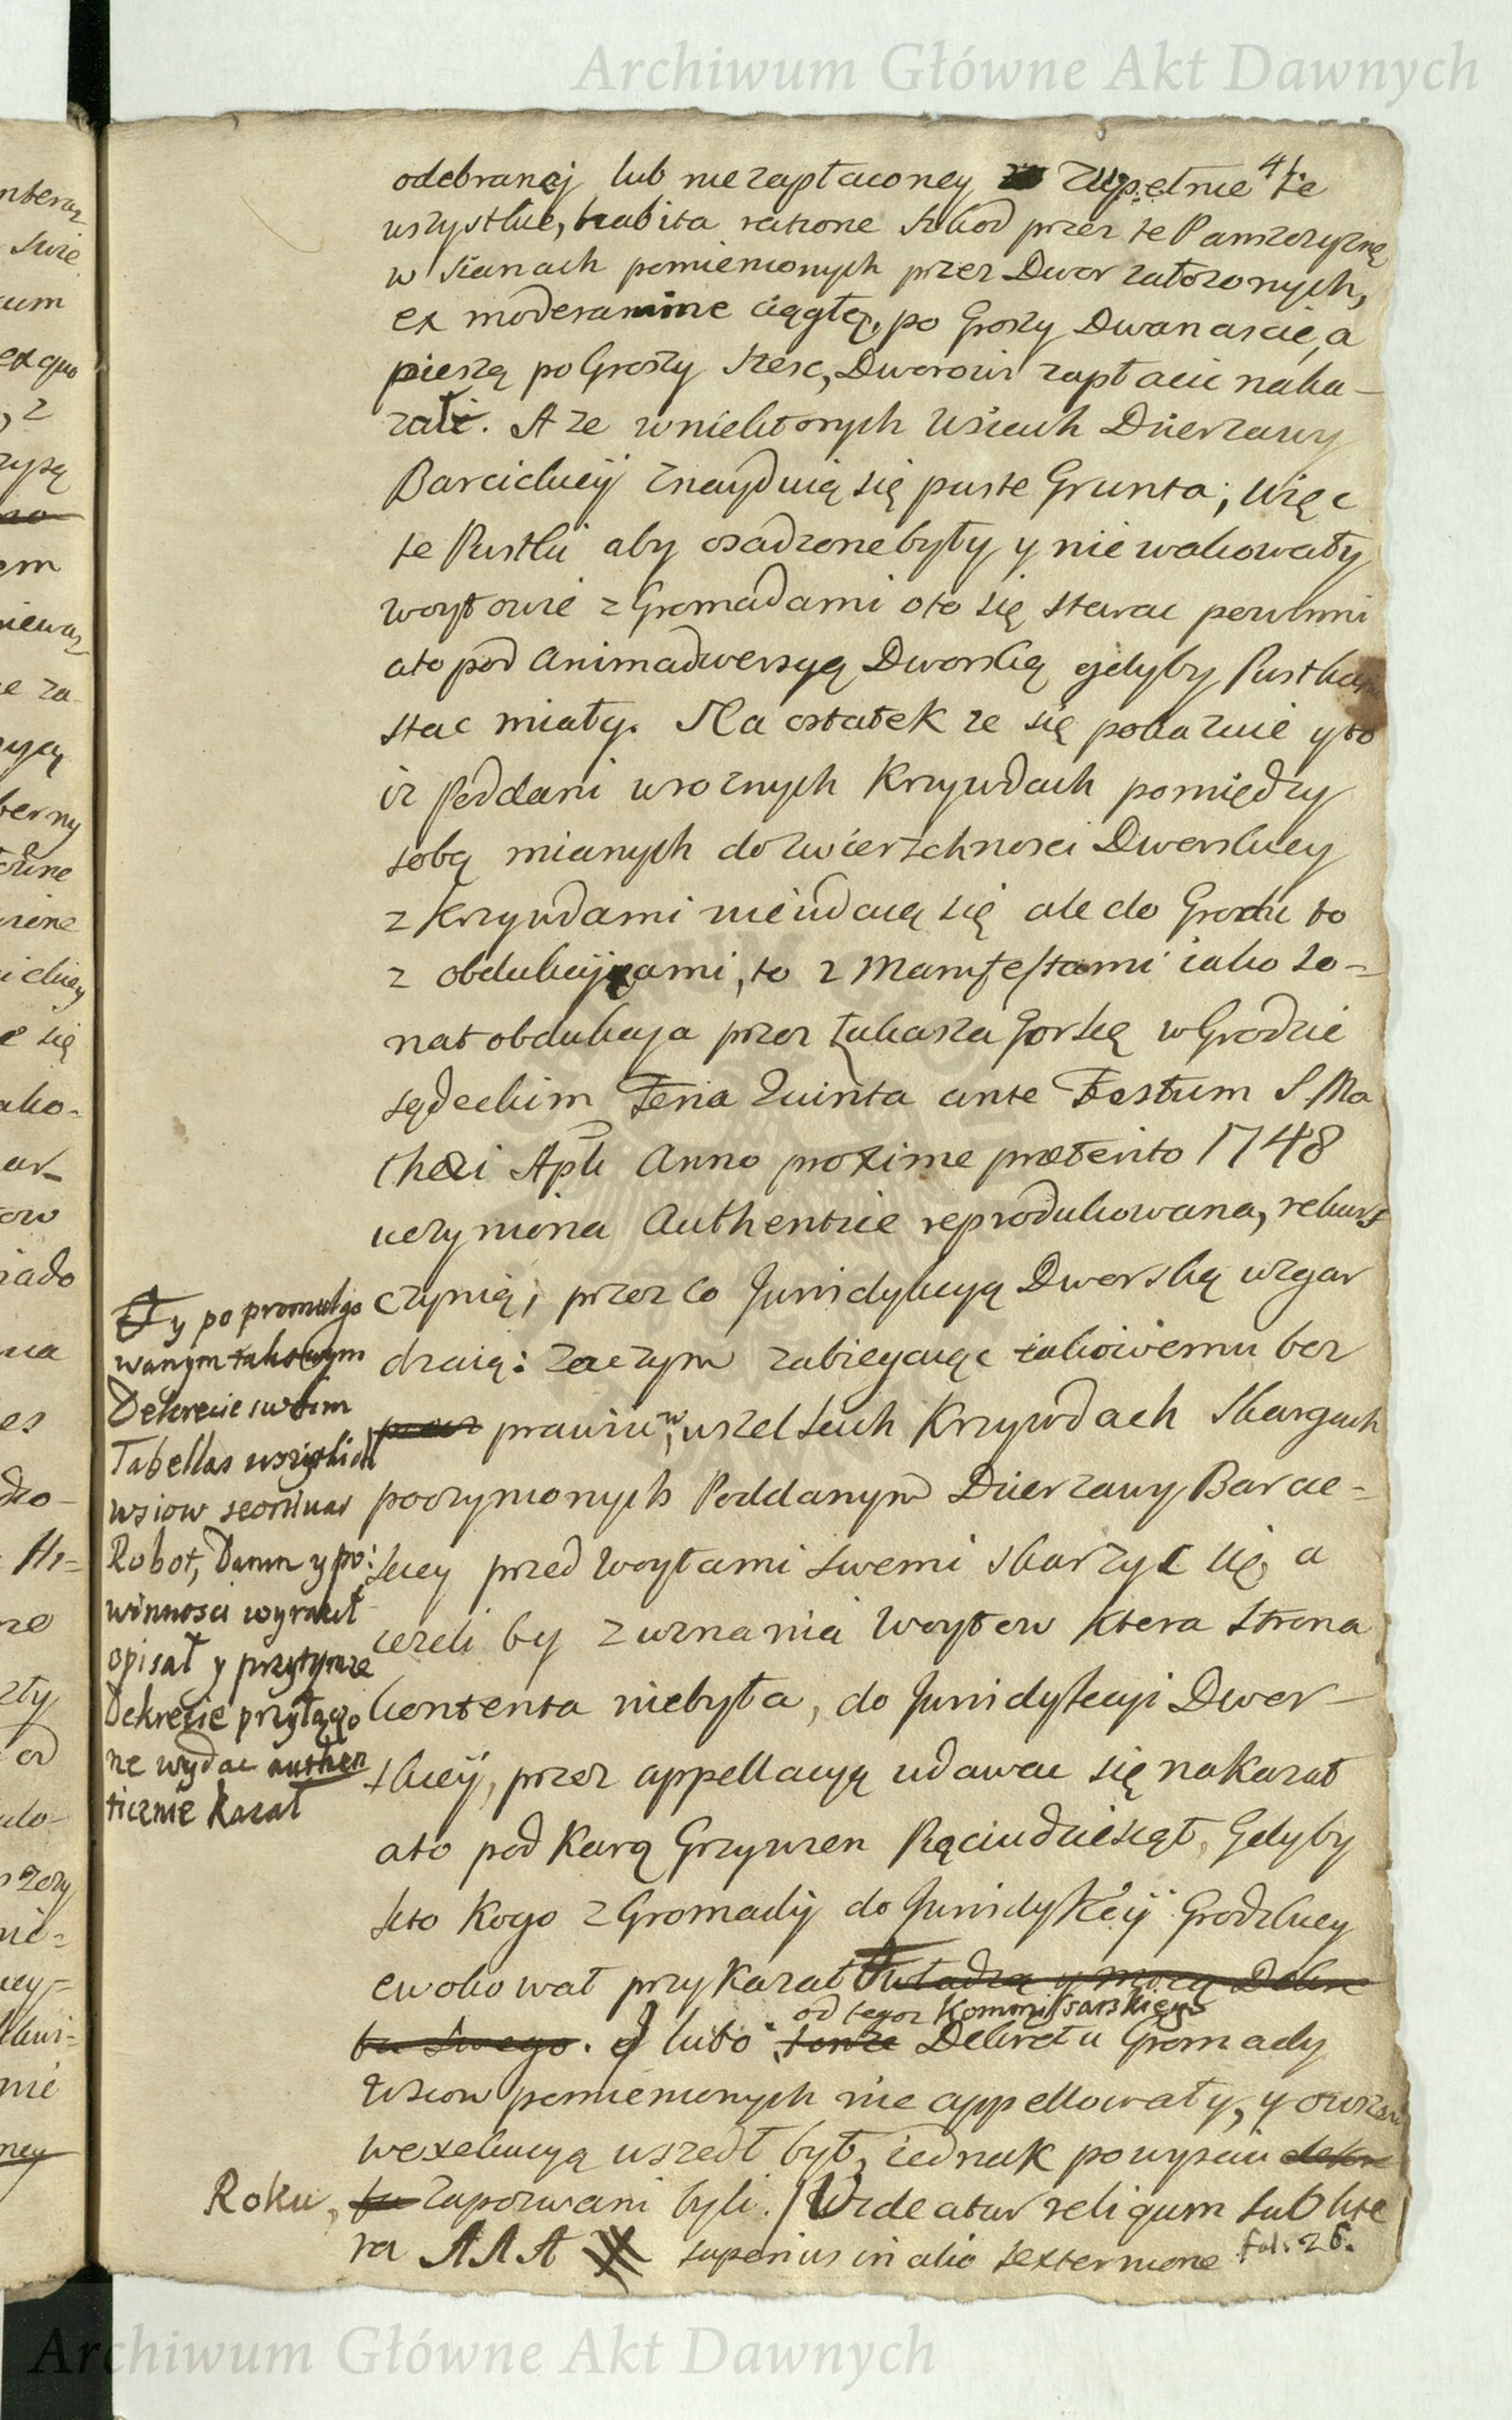 Archiwum Główne Akt Dawnych
41.
odebraney lub niezapłaconey zupełnie te
wszystkie, habita ratione szkod przez te Panszczyznę
w Stanach pomienionych przez Dwor założonych,
ex moderamine ciągłą, po Groszy Dwanascie, a
pieszą po Groszy szesc, Dworowi zapłacic naka-
zali. A ze w niektorych Wsiach Dzierzawy
Barcickiey znayduią się puste Grunta; Więc
te Pustki aby osadzone były y nie wakowały
woytowie z Gromadami oto się starac powinni
ato pod animadwersyą Dworską gdyby Pustkami
stac miały. Na ostatek ze się pokazuie y to
iz Poddani wroznych Krzywdach pomiędzy
sobą mianych do zwierzchnosci Dworskiey
z Krzywdami nieudaią się ale do Grodu to
z obdukcyami, to z Manifestami iako zo-
nat obdukcya przez Łukasza Gorską w Grodzie
sądeckim Feria Quinta ante Festum S. Ma
thaei Apli Anno proxime praeterito 1748
uczyniona Authentice reprodukowana, rekurs
czynią; przez co Jurisdykcyą Dworską wzgar
dzaią: zaczym zabiegaiąc takowemu bez
prawiu, w wszelkich Krzywdach Skargach
poczynionych Poddanym Dzierzawy Barcic-
kiey przed Woytami swemi skarzyc się, a
iezeli by z uznania Woytow ktora strona
kontenta niebyła, do Jurisdykcyi Dwor-
skiey, przez appellacyą udawac się nakazał
ato pod Karą Grzywien Pięciudziesiąt, Gdyby
kto Kogo z Gromady do Jurisdykcyi Grodzkiey
ewokował przykazał Władzą y mocą Dekre
tu swego. I lubo od tegoz Kommissarskiego tenze Dekretu Gromady
Wsiow pomienionych nie appellowały, y owszem
w exekucyą wszedł był, iednak powyściu dekre
tu Roku, zapozwani byli. Videatur reliquum sub litte
ra AAA superius in alio sexternione fol. 26.
y po promulgo
wanym takowym
Dekrecie swoim
Tabellas wszystkich
wsiow seorsivas
Robot, Danin y po:
winnosci wyraził
opisał y przytymze
Dekrecie przyłączo
ne wydac authen
ticznie kazał
Archiwum Główne Akt Dawnych